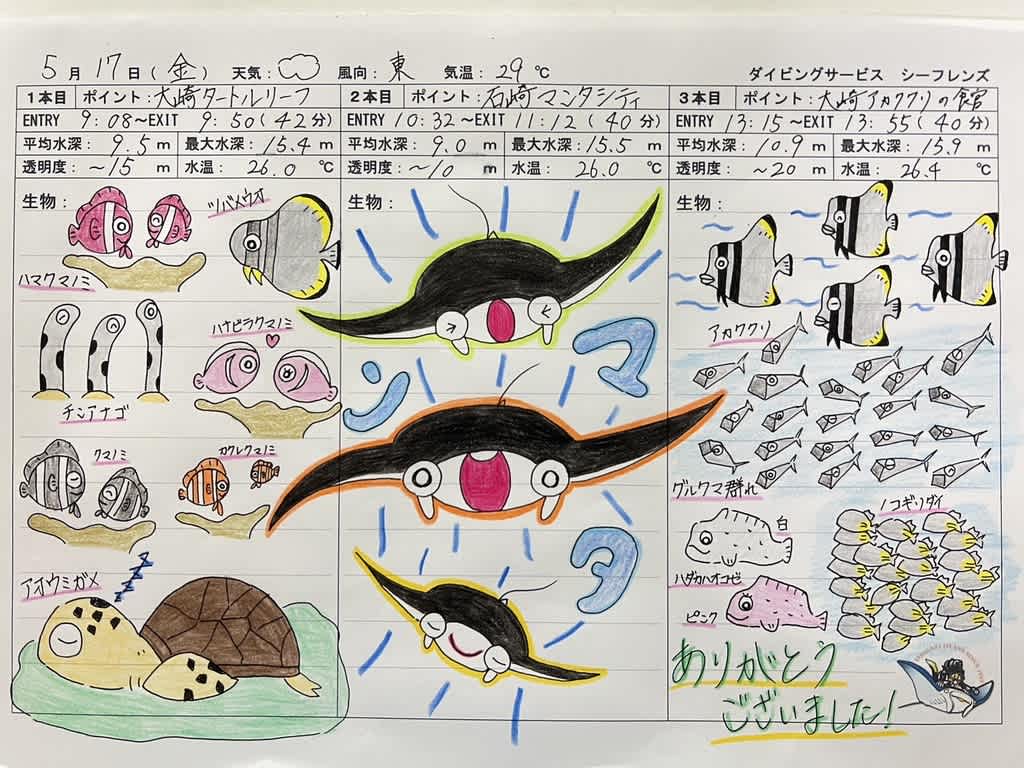 5月17日(金) 天気: 風向:東 気温:29℃ ダイビングサービス シーフレンズ
1本目 ポイント:大崎タートルリーフ
ENTRY 9:08~EXIT 9:50(42分)
平均水深:9.5m 最大水深:15.4m
透明度:~15m 水温:26.0℃
生物:
ツバメウオ
ハマクマノミ
ハナビラクマノミ
チンアナゴ
クマノミ
カクレクマノミ
アオウミガメ
2本目 ポイント:石崎マンタシティ
ENTRY 10:32~EXIT 11:12(40分)
平均水深:9.0m 最大水深:15.5m
透明度:~10m 水温:26.0℃
生物:
マンタ
3本目 ポイント:大崎アカククリの館
ENTRY 13:15~EXIT 13:55(40分)
平均水深:10.9m 最大水深:15.9m
透明度:~20m 水温:26.4℃
生物:
アカククリ
グルクマ群れ
ノコギリダイ
白
ハダカハオコゼ
ピンク
ありがとう
ございました!